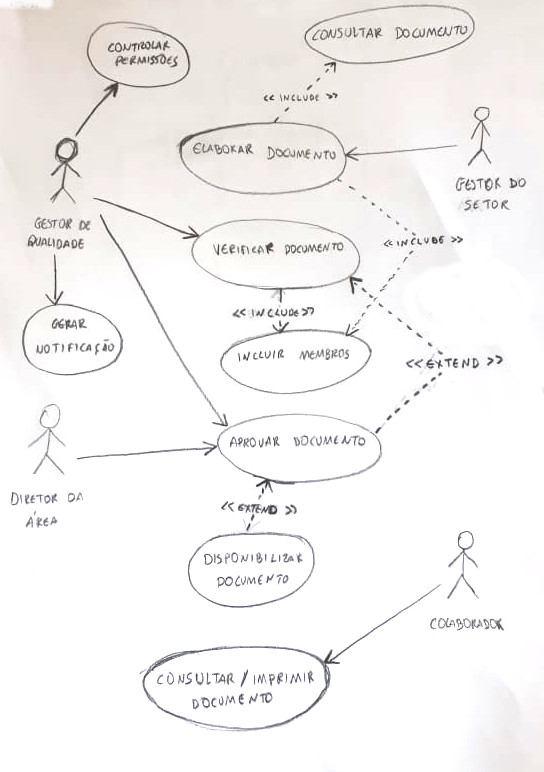 CONSULTAR DOCUMENTO
CONTROLAR
PERMISSÕES
<< INCLUDE >>
ELABORAR DOCUMENTO
GESTOR DO
SETOR
GESTOR DE
QUALIDADE
VERIFICAR DOCUMENTO
<< INCLUDE >>
<< INCLUDE >>
GERAR
NOTIFICAÇÃO
INCLUIR MEMBROS
<< EXTEND >>
APROVAR DOCUMENTO
DIRETOR DA
ÁREA
<< EXTEND >>
DISPONIBILIZAR
DOCUMENTO
COLABORADOR
CONSULTAR / IMPRIMIR
DOCUMENTO